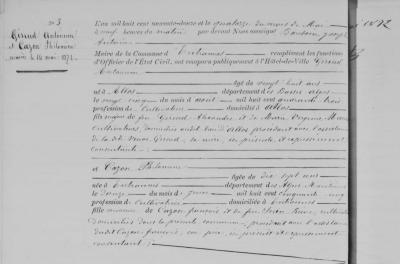 N° 3
Giraud Antonin
et Cazon Philomène
mariés le 14 mai 1872.
1872
L'an mil huit cent soixante-douze et le quatorze du mois de Mai
à neuf heures du matin par devant Nous soussigné
Antoine
Maire de la Commune d'Entraunes remplissant les fonctions
d'Officier de l'État Civil, ont comparu publiquement à l'Hôtel-de-Ville Giraud
Antonin
âgé de vingt huit ans
né à Allos département des Basses Alpes
le vingt cinq du mois d août mil huit cent quarante trois
profession de Cultivateur domicilié à Allos
fils majeur de feu Giraud Alexandre et de Marie
cultivateurs, domiciliés audit lieu d'Allos procédant avec l'assistance
de la dite veuve Giraud, sa mère, ici présente et expressément
consentante ;
et Cazon Philomène
âgée de dix sept ans
née à Entraunes département des Alpes Maritimes
le douze du mois de juin mil huit cent cinquante
profession de Cultivatrice domiciliée à Entraunes
fille mineure de Cazon françois et de feu cultivateurs
domiciliés dans la présente commune, procédant avec l'assistance
dudit Cazon françois, son père, ici présent et expressément
consentant ;